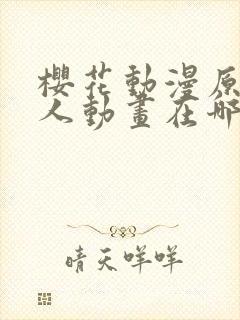 櫻花動漫原
人動畫在哪
晴天咩咩